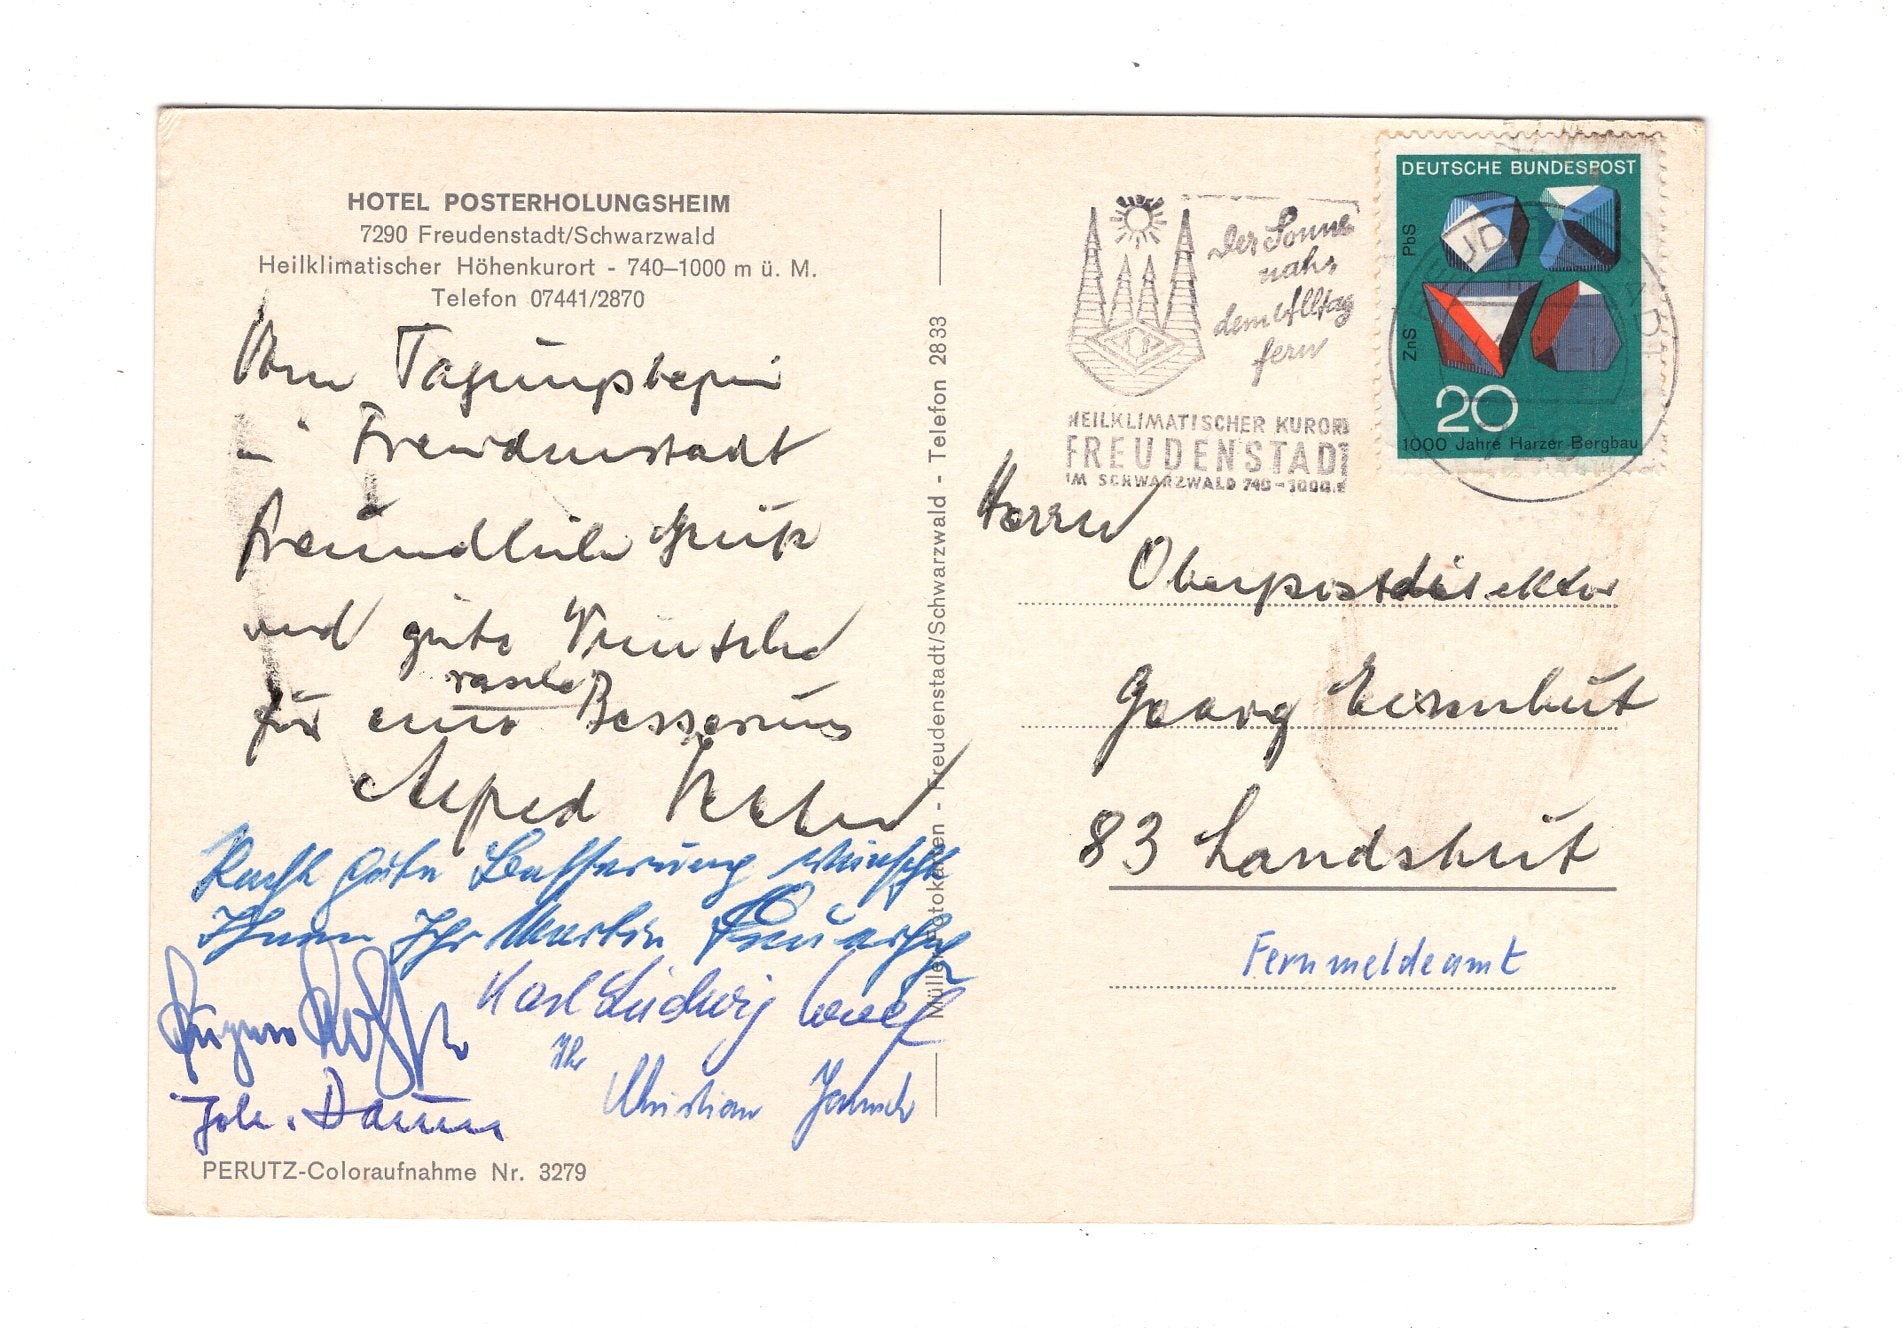 HOTEL POSTERHOLUNGSHEIM
7290 Freudenstadt/Schwarzwald
Heilklimatischer Höhenkurort - 740–1000 m ü. M.
Telefon 07441/2870
Vom Tagungsbeginn
in Freudenstadt
freundliche Grüße
und gute Wünsche
rasche
für eine Besserung
Alfred
Recht gute Besserung wünscht
Ihnen Ihr Martin
Karl Ludwig
Eugen
Ihr
Christian
Joh. Daum
PERUTZ-Coloraufnahme Nr. 3279
Müller-Fotokarten - Freudenstadt/Schwarzwald - Telefon 2833
Der Sonne
nah,
dem Alltag
fern
HEILKLIMATISCHER KURORT
FREUDENSTADT
IM SCHWARZWALD 740-1000
DEUTSCHE BUNDESPOST
PbS
ZnS
20
1000 Jahre Harzer Bergbau
Herrn
Oberpostdirektor
Georg Eisenhut
83 Landshut
Fernmeldeamt